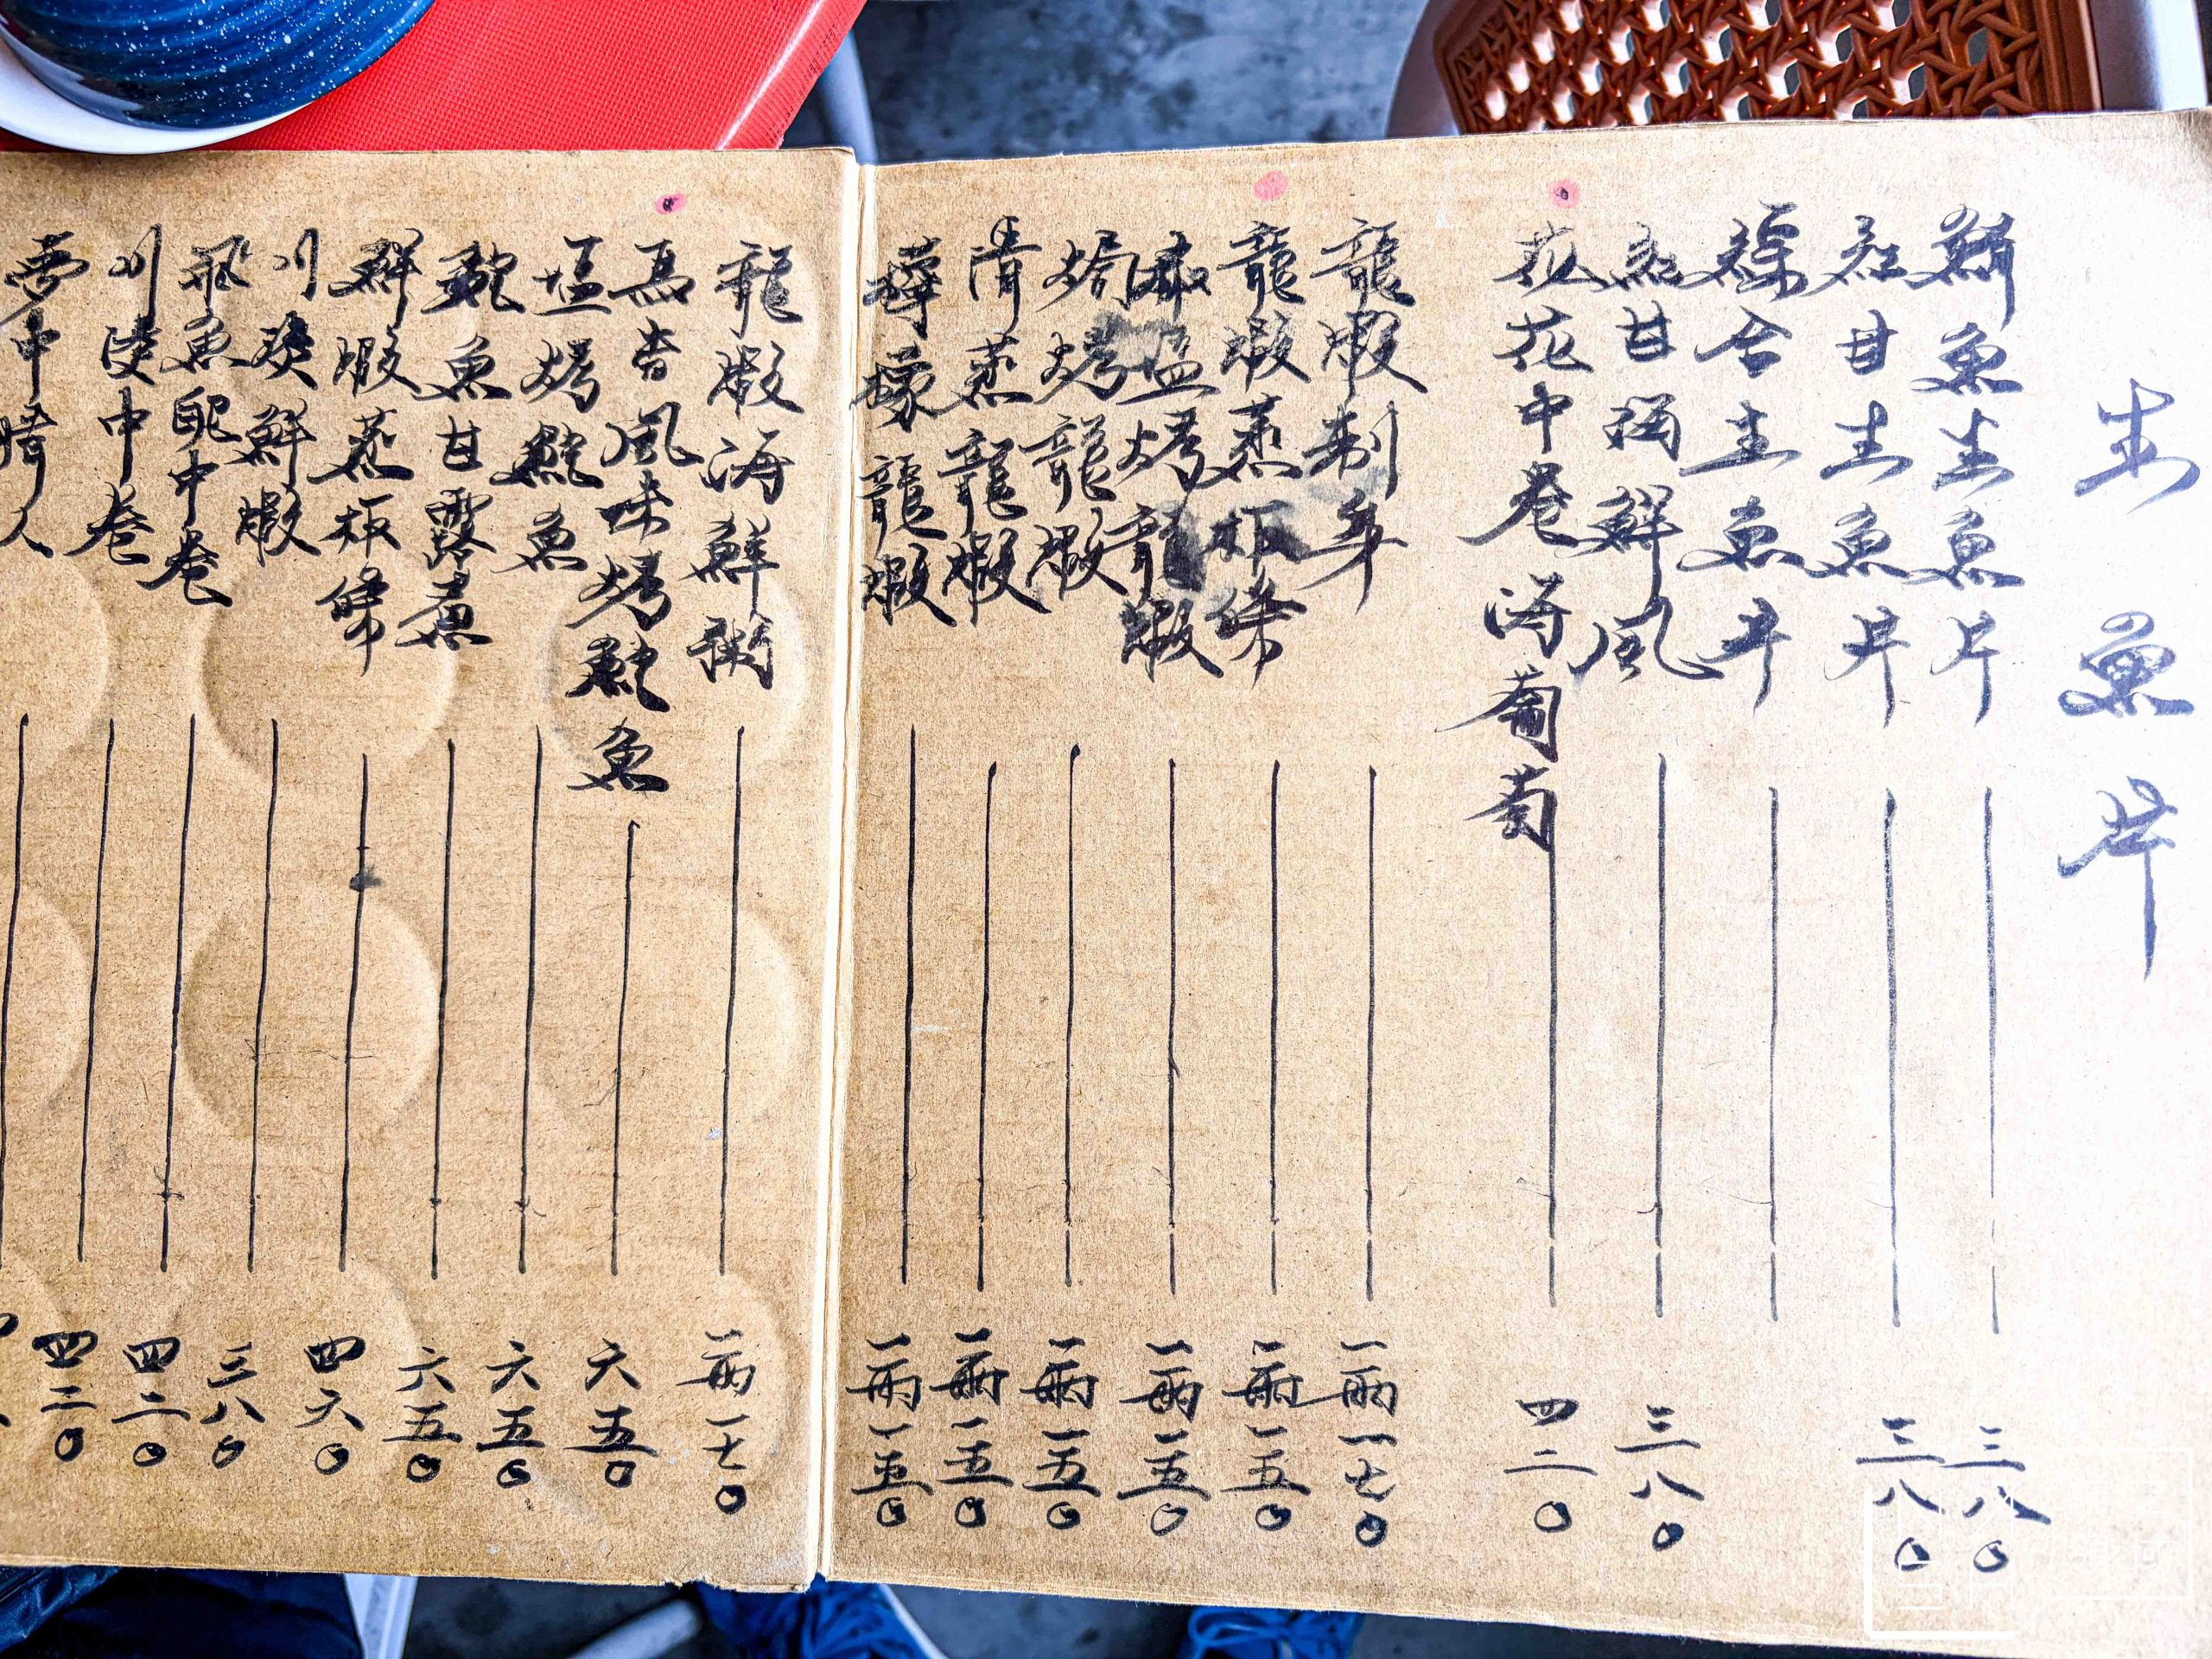 生魚片
魚生魚片 三八〇
紅甘生魚片 三八〇
綜合生魚片
紅甘 鮮風 三八〇
花中卷海葡萄 四二〇
龍蝦制身 一兩一七〇
龍蝦蒸板條 一兩一五〇
鹽烤龍蝦 一兩一五〇
焗烤龍蝦 一兩一五〇
清蒸龍蝦 一兩一五〇
檸檬龍蝦 一兩一五〇
龍蝦海鮮粥 一兩一七〇
馬告風味烤魚 六五〇
塩烤魚 六五〇
魚甘露煮 六五〇
鮮蝦蒸板條 四六〇
川燙鮮蝦 三八〇
飛魚卵中卷 四二〇
川燙中卷 四二〇
中 人